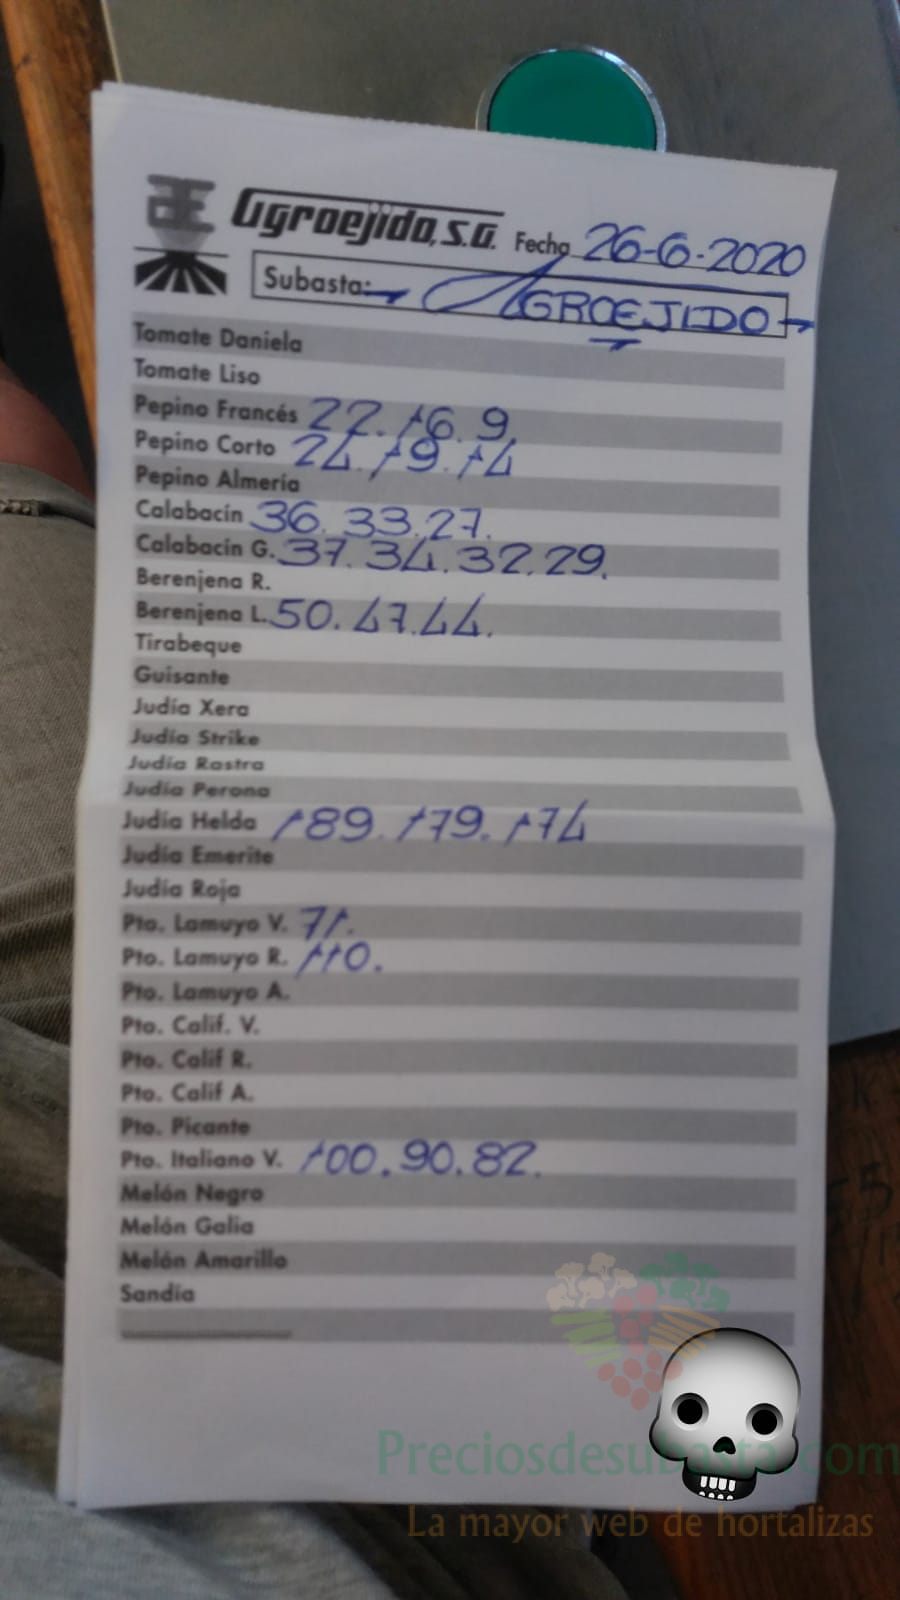 Agroejido, S.A. Fecha 26-6-2020
Subasta: AGROEJIDO
Tomate Daniela
Tomate Liso
Pepino Francés 22. 16. 9
Pepino Corto 24. 19. 14
Pepino Almería
Calabacín 36. 33. 27.
Calabacín G. 37. 34. 32. 29.
Berenjena R.
Berenjena L. 50. 47. 44.
Tirabeque
Guisante
Judía Xera
Judía Strike
Judía Rastra
Judía Perona
Judía Helda 189. 179. 174
Judía Emerite
Judía Roja
Pto. Lamuyo V. 71.
Pto. Lamuyo R. 110.
Pto. Lamuyo A.
Pto. Calif. V.
Pto. Calif R.
Pto. Calif A.
Pto. Picante
Pto. Italiano V. 100. 90. 82.
Melón Negro
Melón Galia
Melón Amarillo
Sandía
Preciosdesubasta.com
La mayor web de hortalizas